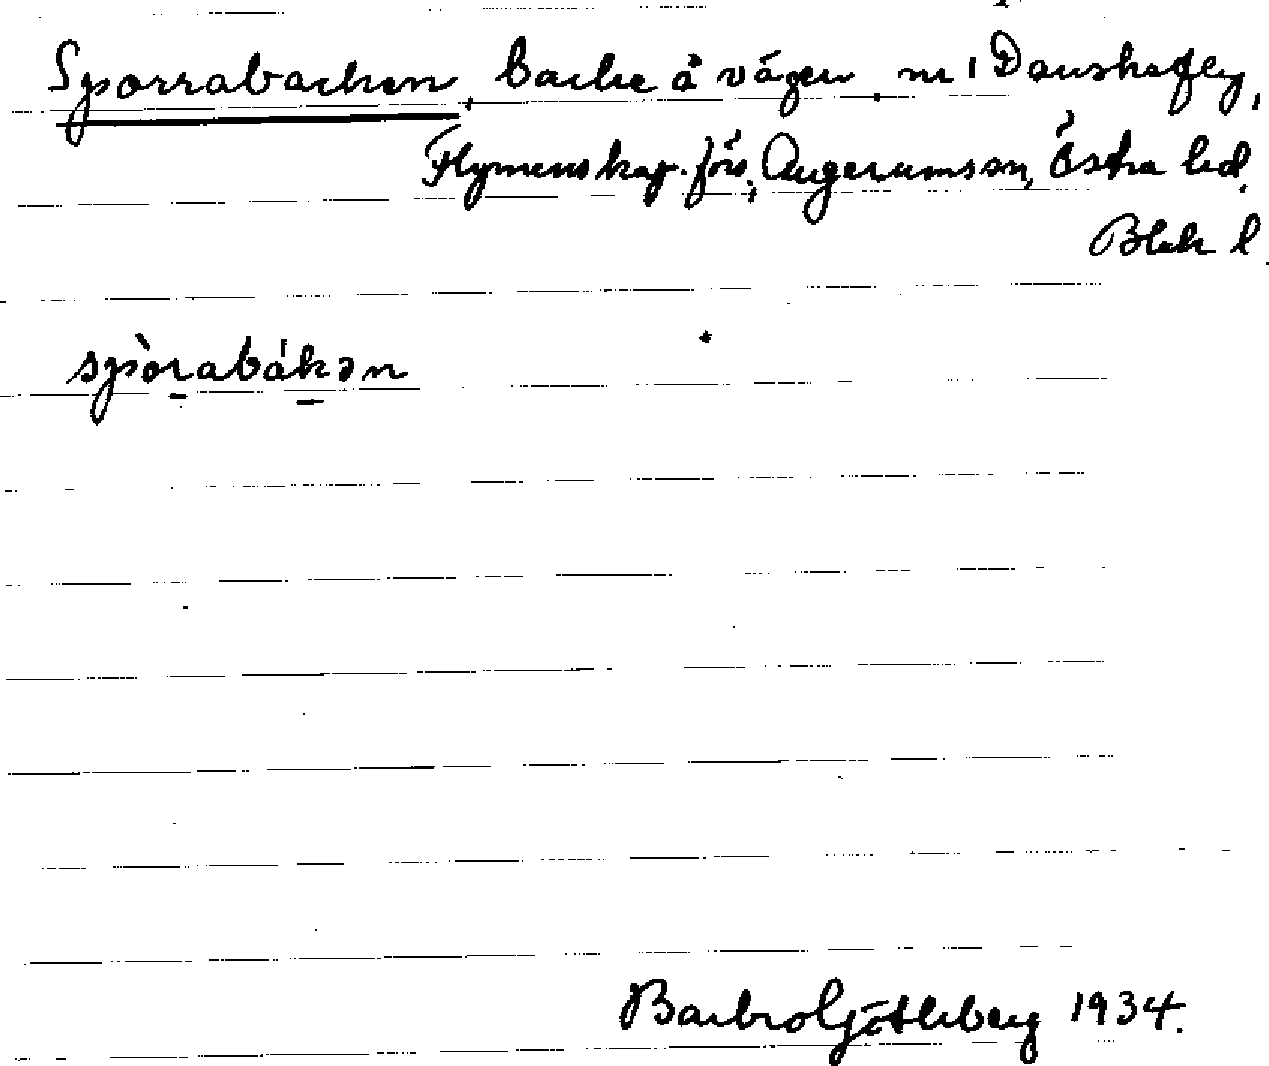 Sporrabacken, backe å vägen, nr 1 Danskafly,
Flymenskap. förs., Augerumssn, Östra hd,
Blek. l.
spòrabákən
Barbro Götleberg 1934.